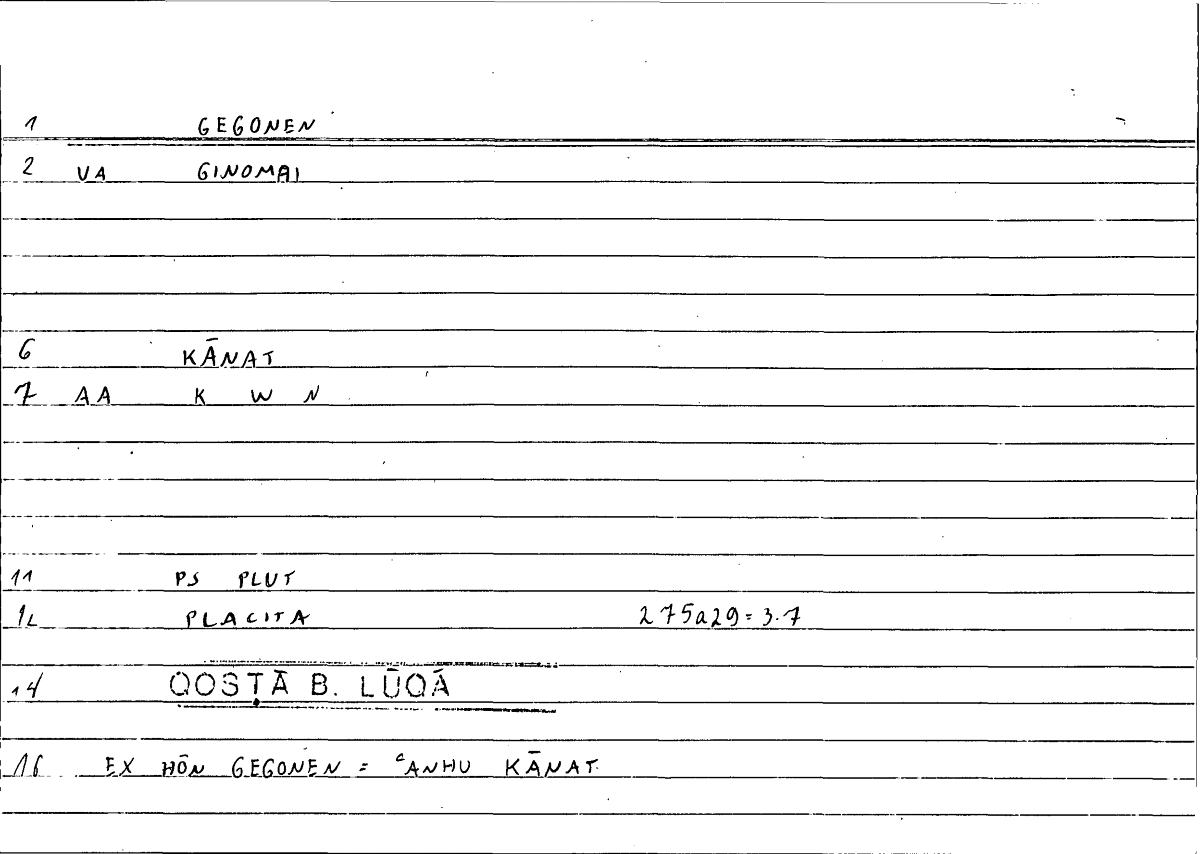 1 GEGONEN
2 VA GINOMAI
6 KĀNAT
7 AA K W N
11 PS PLUT
12 PLACITA 275a29=3.7
14 QOSṬĀ B. LŪQĀ
16 EX HŌN GEGONEN = ʿANHU KĀNAT